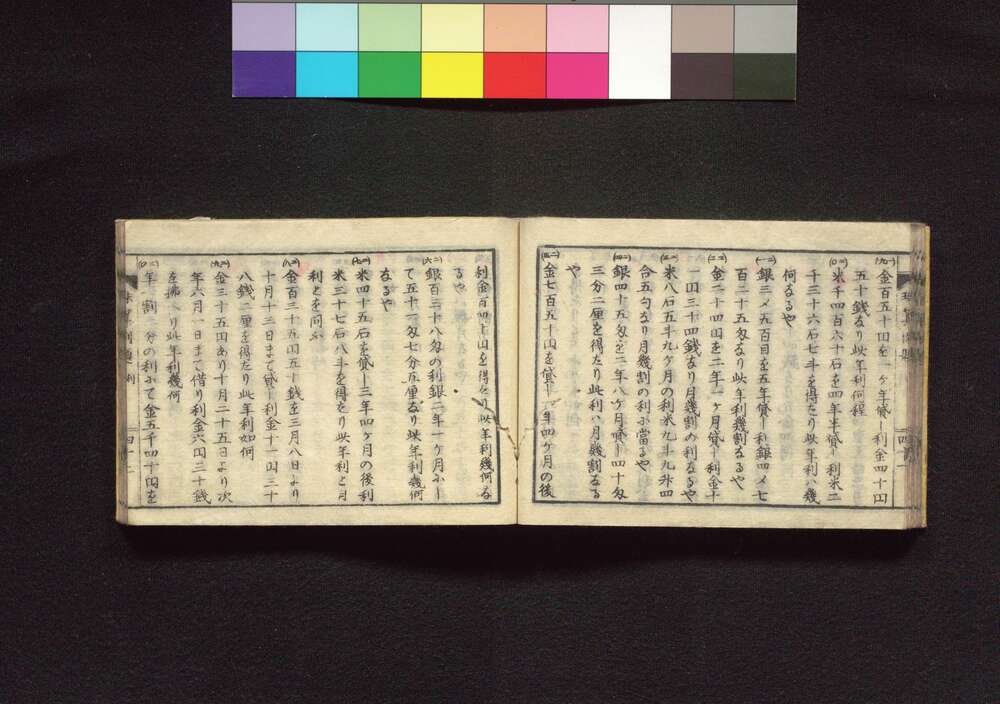 金百五十円を一ヶ年貸し利金四十円
五十銭なり此年利何程
米千四百六十石を四年半貸し利米二
千三十六石七斗を得たり此年利ハ幾
何なるや
銀三〆五百目を五年貸し利銀四〆七
百二十五匁なり此年利幾割なるや
金二十四円を二年一ヶ月貸し利金十
一円三十四銭なり月幾割の利なるや
米八石五斗九ヶ月の利米九斗九升四
合五勺なり月幾割の利に當るや
銀四十五匁を二年八ヶ月貸し四十匁
三分二厘を得たり此利ハ月幾割なる
や
金七百五十円を貸し一年四ヶ月の後
利金百四十円を得たり此年利幾何な
るや
銀百三十八匁の利銀二年一ヶ月にし
て五十一匁七分五厘なり此年利幾何
なるや
米四十五石を貸し三年四ヶ月の後利
米三十七石八斗を得たり此年利と月
利とを問ふ
金百三十九円五十銭を三月八日より
十月十三日まで貸し利金十一円三十
八銭二厘を得たり此年利如何
金二十五円あり十月二十五日より次
年六月一日まで借り利金六円三十銭
を拂へり此年利幾何
年一割二分の利にて金五千四十円を